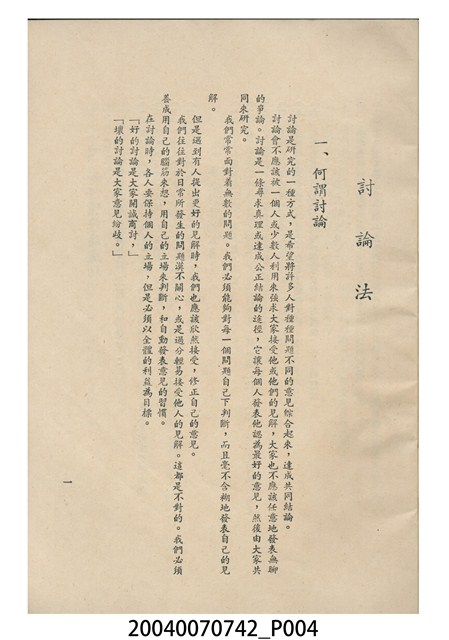 討論法
一、何謂討論
討論是研究的一種方式，是希望將許多人對種種問題不同的意見綜合起來，達成共同結論。
討論會不應該被一個人或少數人利用來強求大家接受他或他們的見解，大家也不應該任意地發表無聊
的爭論。討論是一條尋求真理或達成公正結論的途徑，它讓每個人發表他認為最好的意見，然後由大家共
同來研究。
我們常常面對着無數的問題。我們必須能夠對每一個問題自己下判斷，而且毫不含糊地發表自己的見
解。
但是遇到有人提出更好的見解時，我們也應該欣然接受，修正自己的意見。
我們往往對於日常所發生的問題漠不關心，或是過分輕易接受他人的見解。這都是不對的。我們必須
養成用自己的腦筋來想，用自己的立場來判斷，和自動發表意見的習慣。
在討論時，各人要保持個人的立場，但是必須以全體的利益為目標。
「好的討論是大家開誠商討，」
「壞的討論是大家意見紛歧。」
一
20040070742_P004